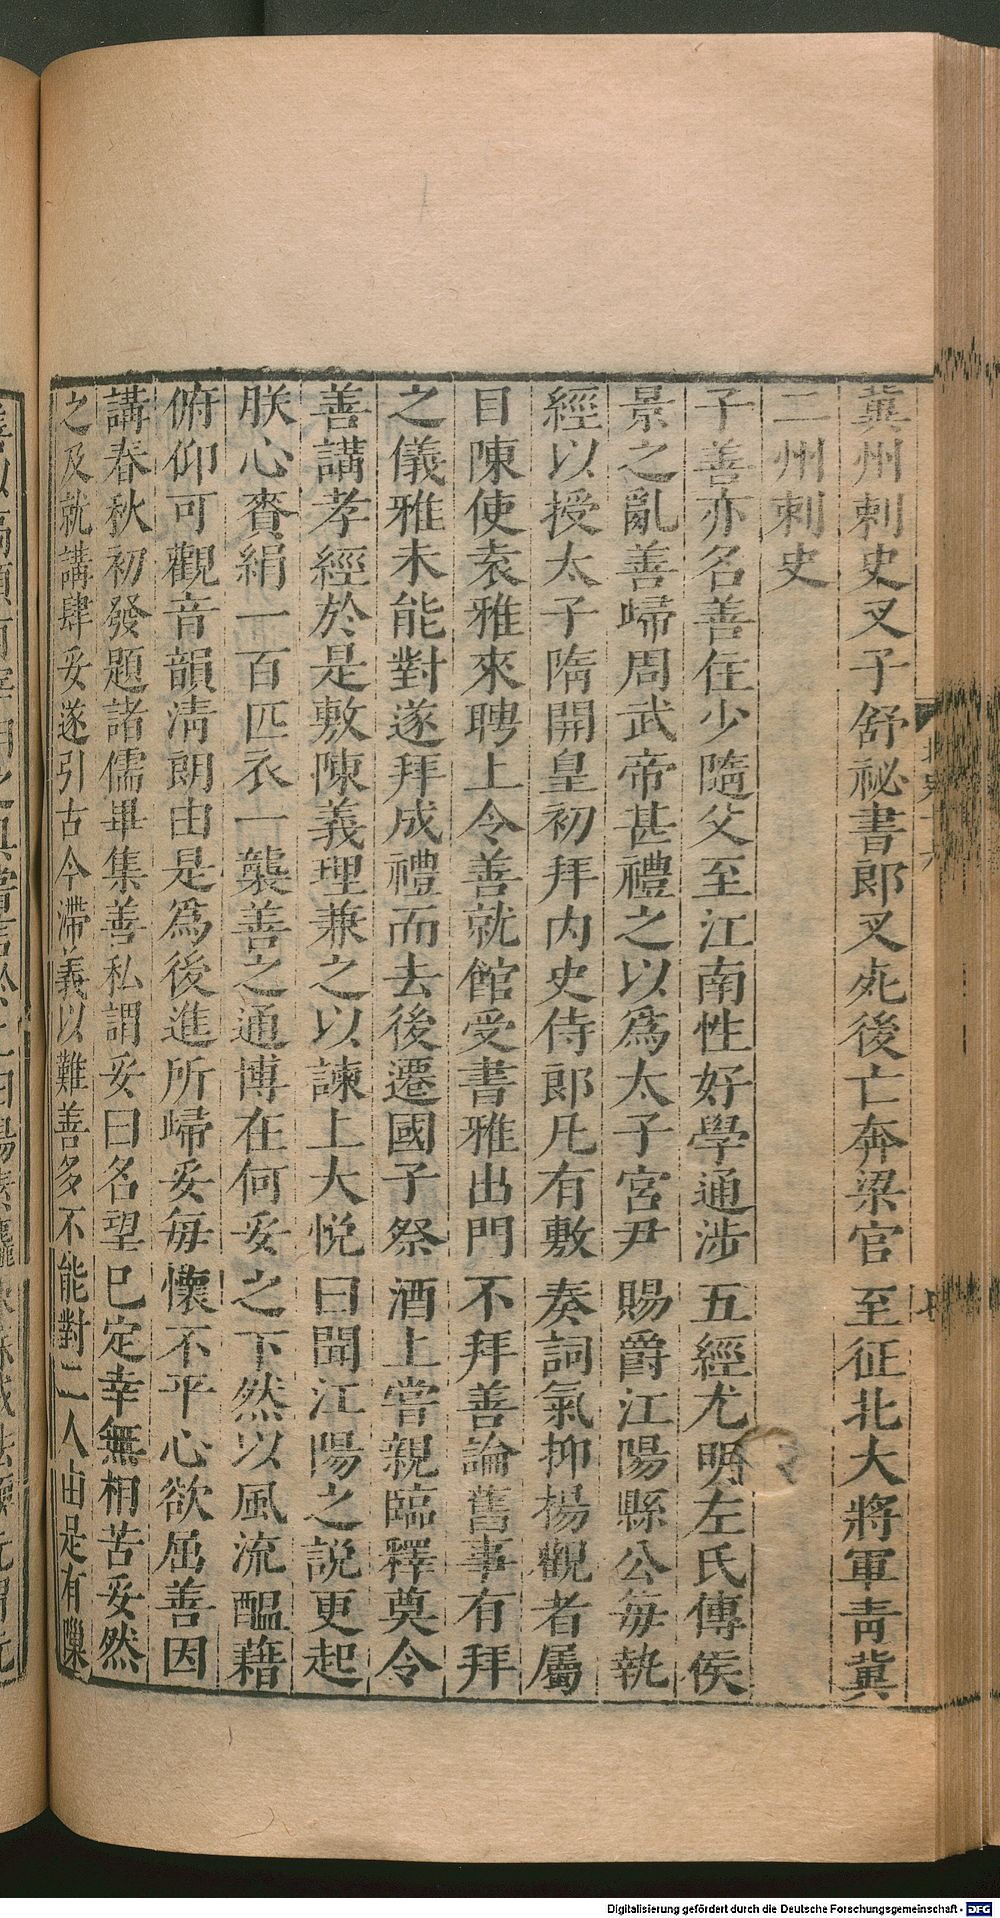 冀州刺史叉子舒祕書郎叉死後亡奔梁官至征北大將軍青冀
二州刺史
子善亦名善住少隨父至江南性好學通涉五經尤明左氏傳侯
景之亂善歸周武帝甚禮之以爲太子宮尹賜爵江陽縣公每執
經以授太子隋開皇初拜内史侍郎凡有敷奏詞氣抑楊觀者屬
目陳使袁雅來聘上令善就館受書雅出門不拜善論舊事有拜
之儀雅未能對遂拜成禮而去後遷國子祭酒上嘗親臨釋奠令
善講孝經於是敷陳義理兼之以諫上大悅曰聞江陽之說更起
朕心賚絹一百匹衣一襲善之通博在何妥之下然以風流醞藉
俯仰可觀音韻淸朗由是爲後進所歸妥每懷不平心欲屈善因
講春秋初發題諸儒畢集善私謂妥曰名望已定幸無相苦妥然
之及就講肆妥遂引古今滯義以難善多不能對二人由是有隟
Digitalisierung gefördert durch die Deutsche Forschungsgemeinschaft - DFG